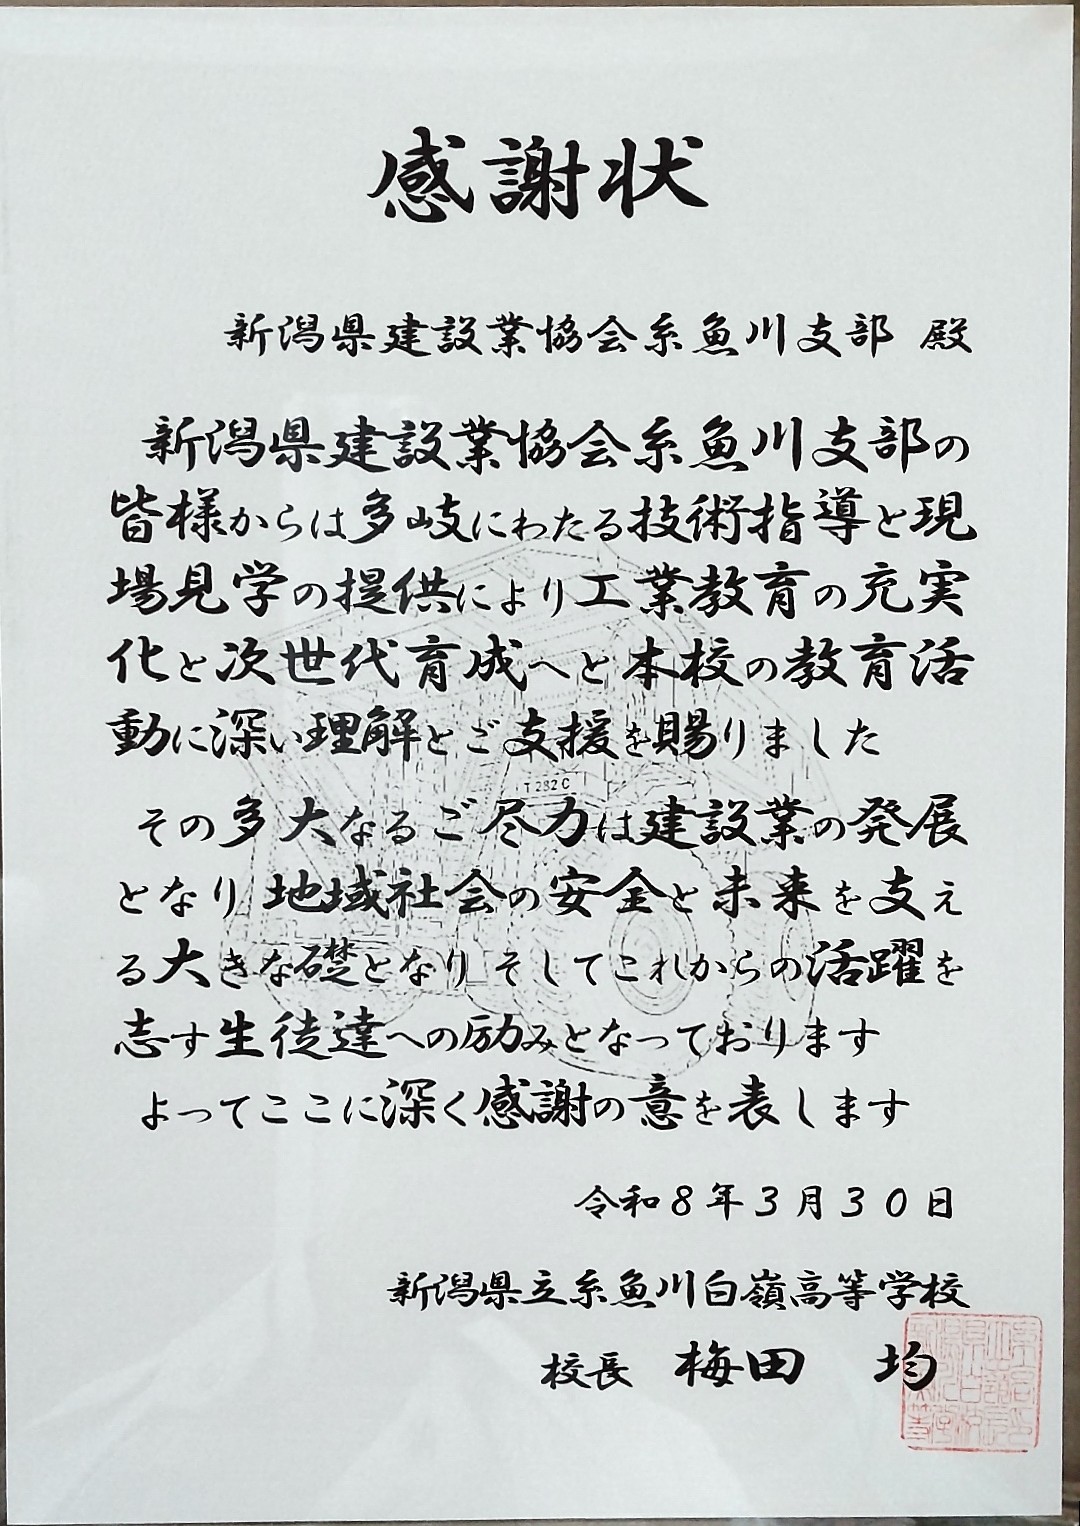 感謝状
新潟県建設業協会糸魚川支部 殿
新潟県建設業協会糸魚川支部の
皆様からは多岐にわたる技術指導と現
場見学の提供により工業教育の充実
化と次世代育成へと本校の教育活
動に深い理解とご支援を賜りました
T 282 C
その多大なるご尽力は建設業の発展
となり地域社会の安全と未来を支え
る大きな礎となり そしてこれからの活躍を
志す生徒達への励みとなっております
よってここに深く感謝の意を表します
令和８年３月３０日
新潟県立糸魚川白嶺高等学校
校長 梅田 均